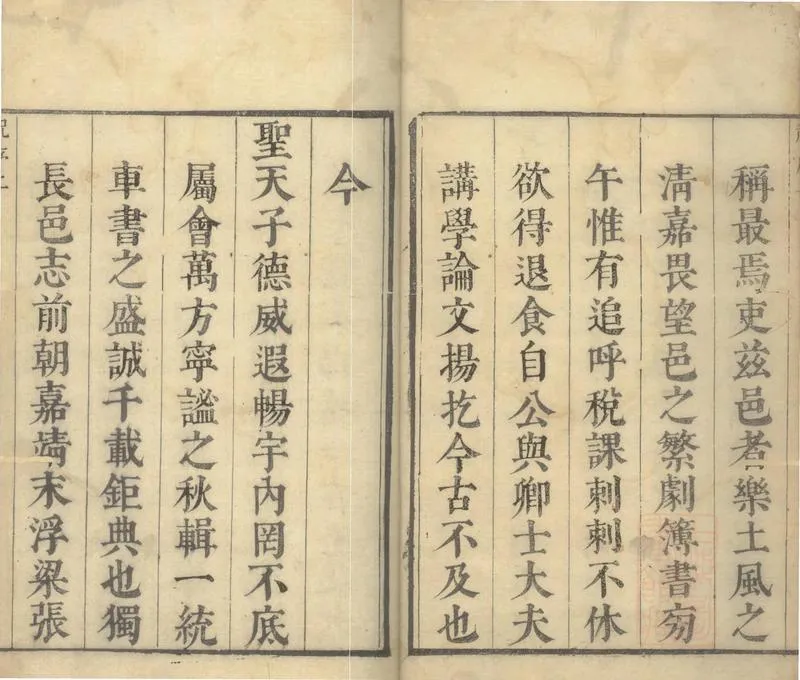 稱最焉吏兹邑者樂土風之
淸嘉畏望邑之繁劇簿書旁
午惟有追呼稅課剌剌不休
欲得退食自公與卿士大夫
講學論文揚扢今古不及也
今
聖天子德威遐暢宇內罔不底
屬會萬方寧謐之秋輯一統
車書之盛誠千載鉅典也獨
長邑志前朝嘉靖末浮梁張